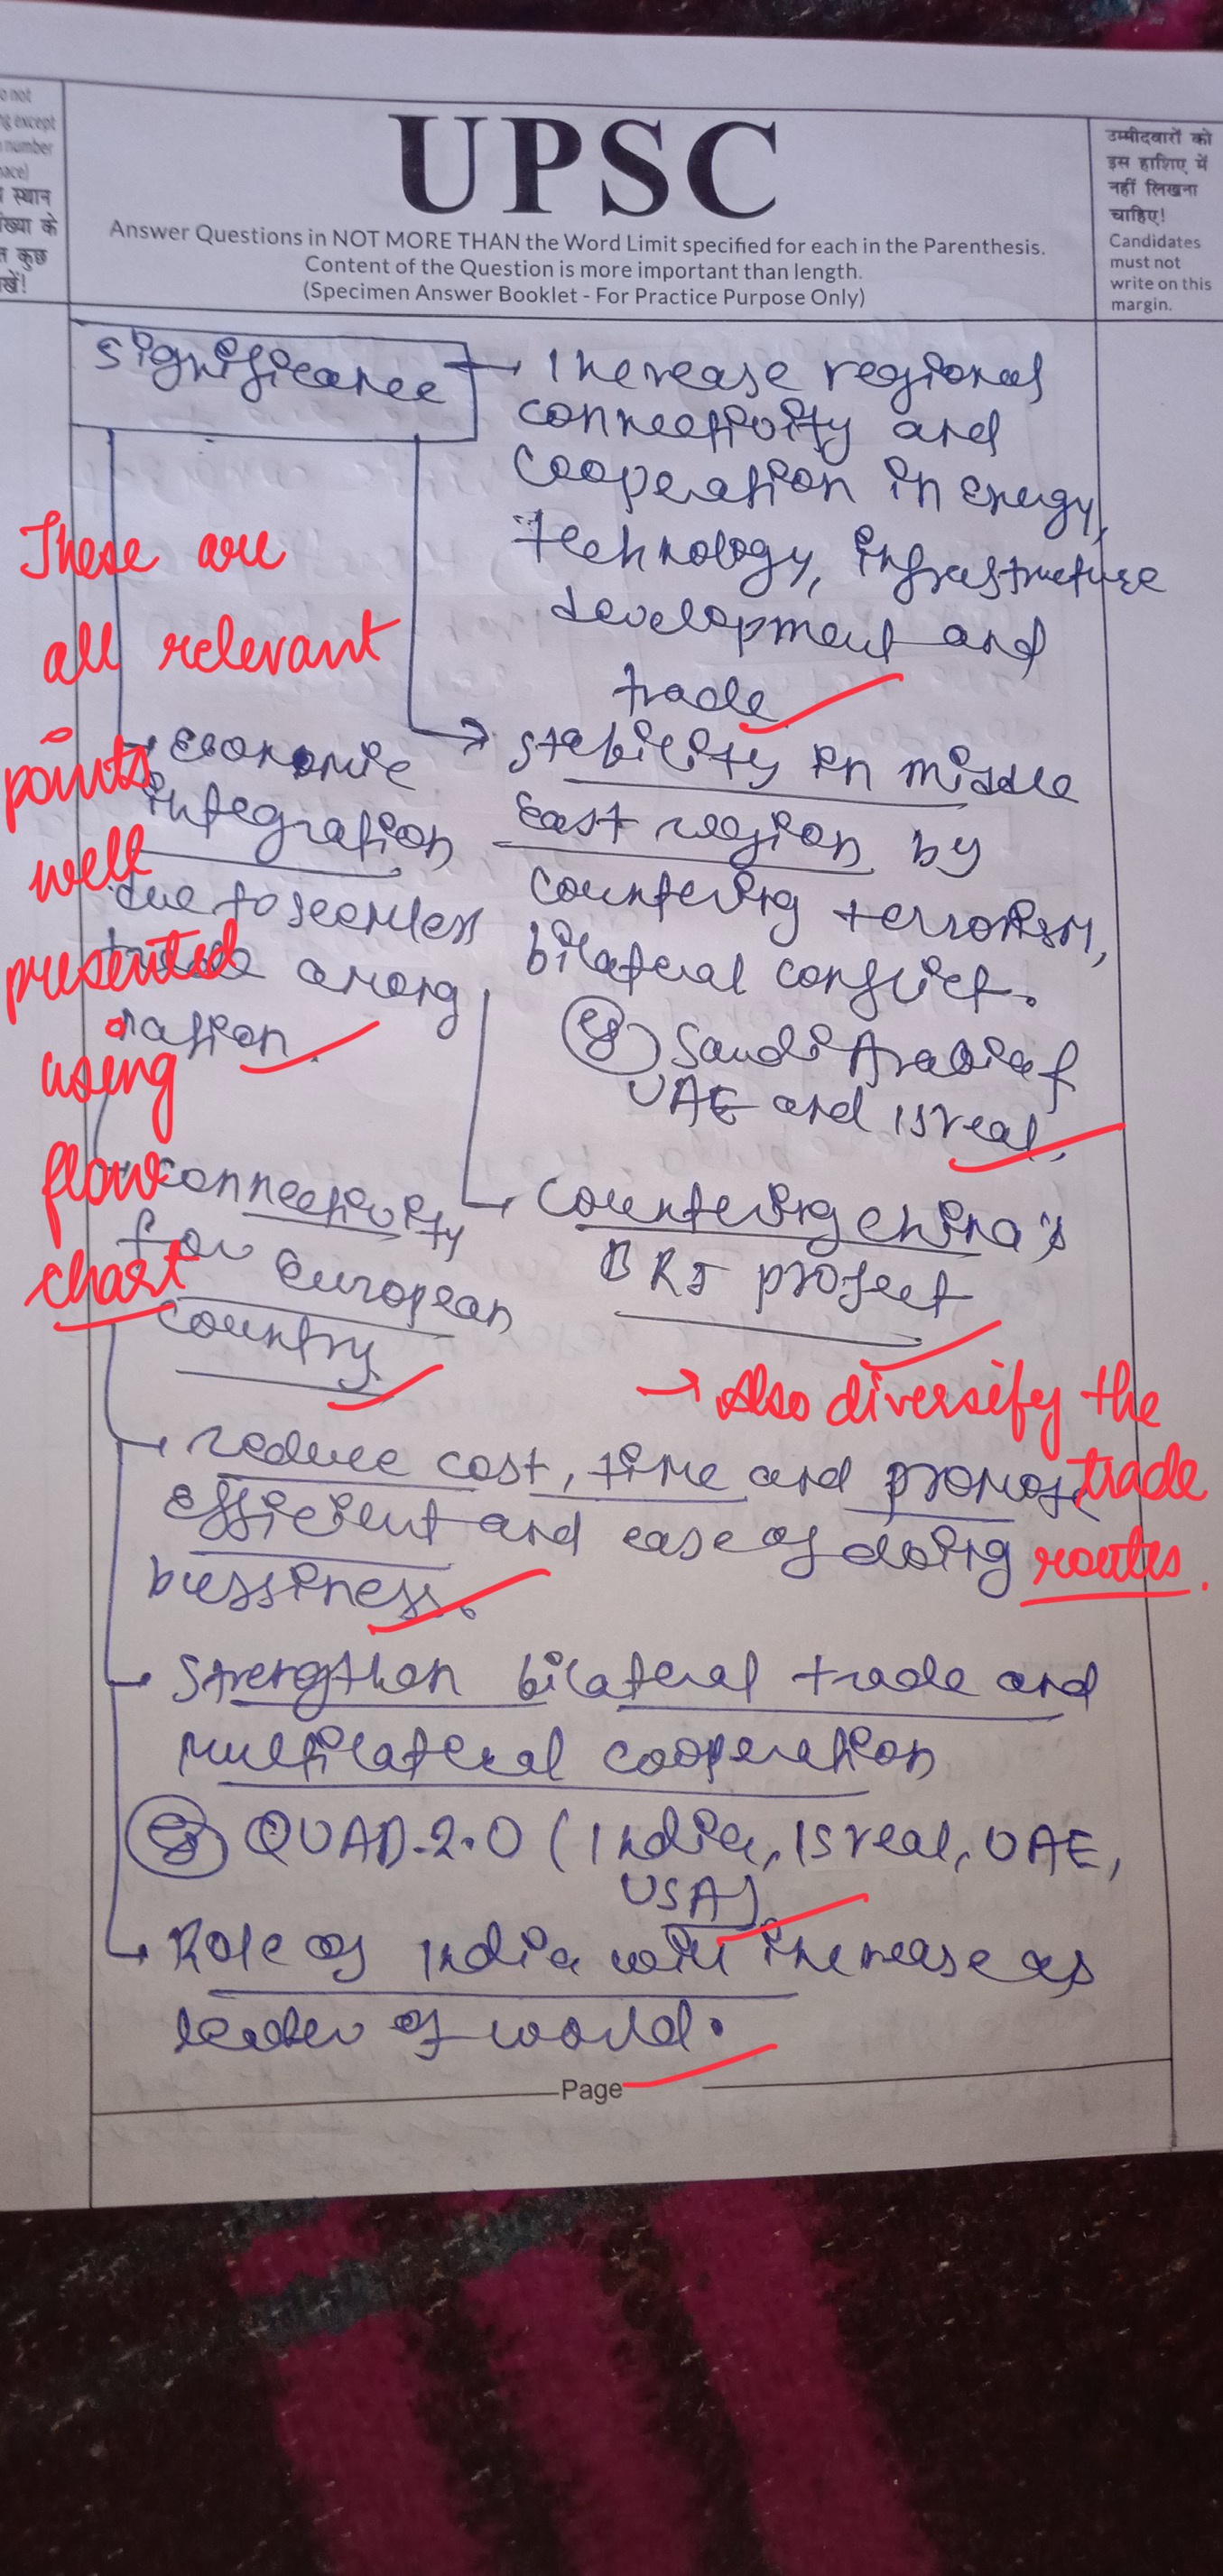 o not
ng except
number
pace)
स्थान
ंख्या के
कुछ
खें!
UPSC
Answer Questions in NOT MORE THAN the Word Limit specified for each in the Parenthesis.
Content of the Question is more important than length.
(Specimen Answer Booklet - For Practice Purpose Only)
उम्मीदवारों को
इस हाशिए में
नहीं लिखना
चाहिए!
Candidates
must not
write on this
margin.
Significance
Increase regional
connectivity and
cooperation in energy,
technology, infrastructure
development and
trade
These are
all relevant
points
well
presented
using
flow
chart
Economic
integration
due to seemless
trade among
nation.
stability in middle
East region by
countering terrorism,
bilateral conflict.
eg Saudi Arabia &
UAE and Isreal.
connectivity
for European
country
countering china's
BRI project
→ Also diversify the
trade
routes.
reduce cost, time and promote
efficient and ease of doing
bussiness.
Strengthen bilateral trade and
multilateral cooperation
eg QUAD-2.0 (India, Isreal, UAE,
USA).
Role of India will increase as
leader of world.
Page